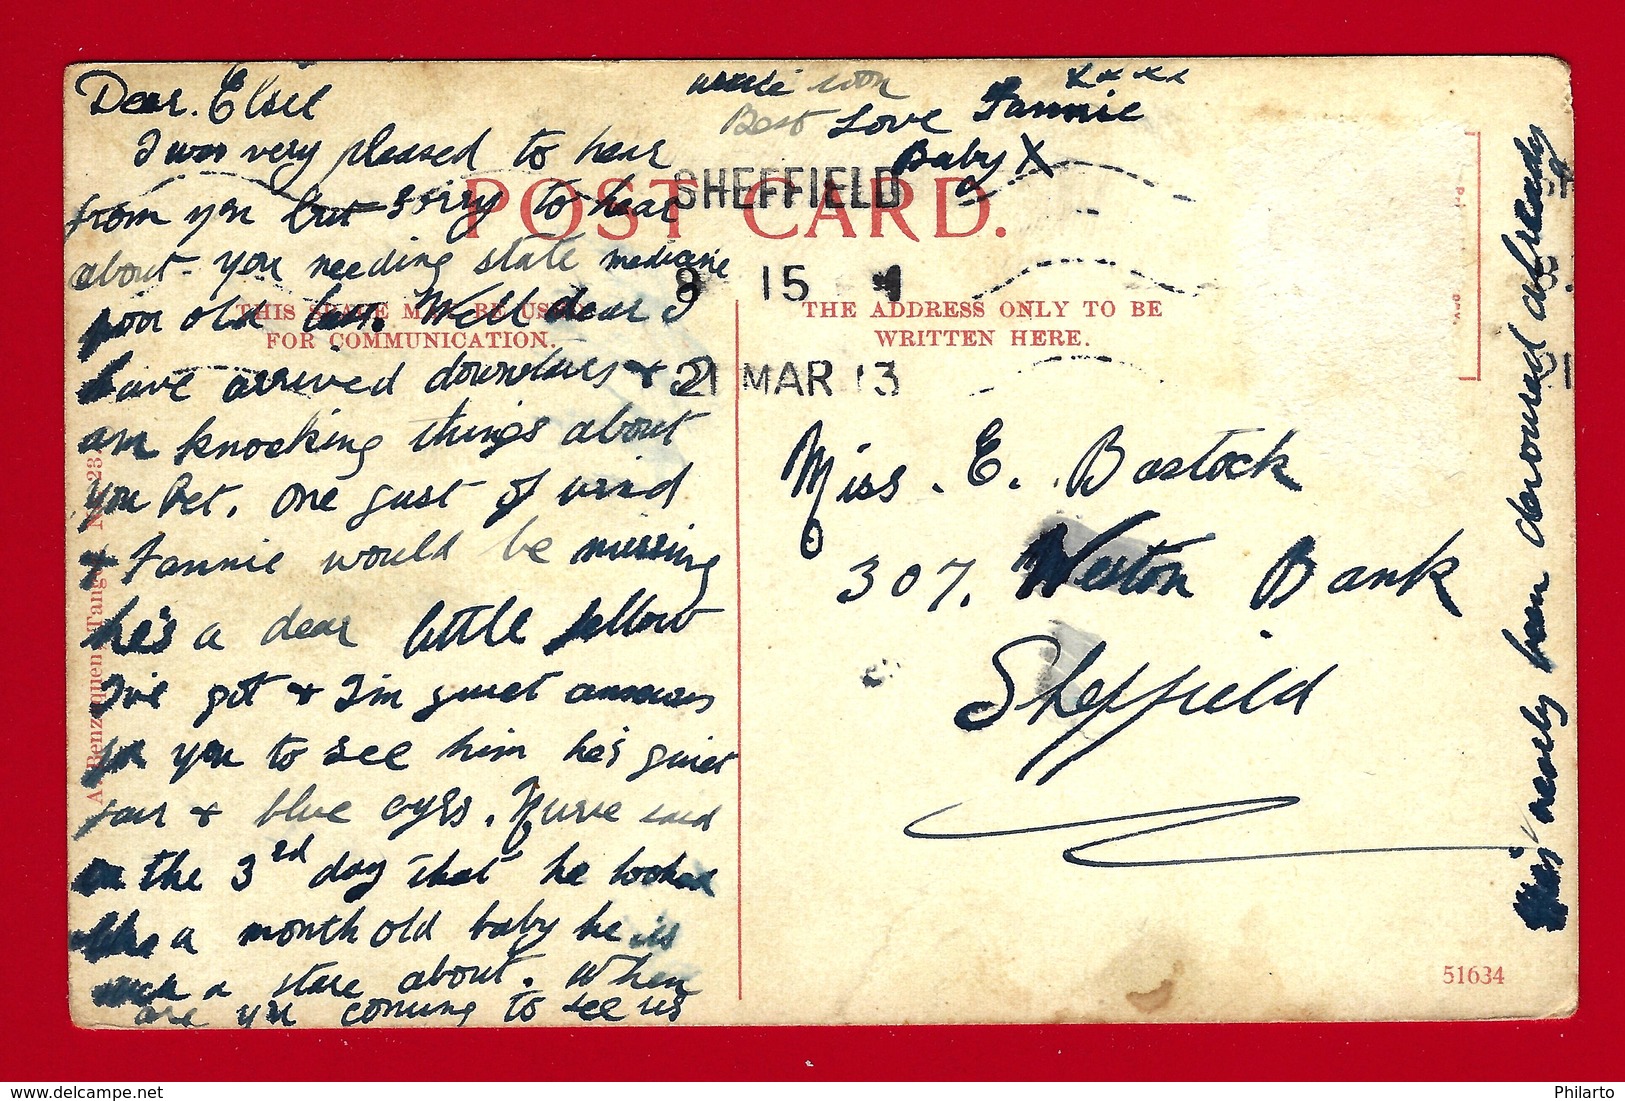 Dear. Elsie
I was very pleased to hear
from you but sorry to hear
about you needing state medicine
poor old Well dear I
have arrived downstairs + I
am knocking things about
you bet. One gust of wind
+ Fannie would be missing
he's a dear little fellow
I've got + I'm quiet anxious
for you to see him he's quiet
fair + blue eyes. Nurse said
on the 3rd day that he looked
like a month old baby he is
such a stare about. When
are you coming to see us
write soon
Best Love Fannie
xxxx
Baby X
POST CARD.
SHEFFIELD
8 15
21 MAR 13
THIS SPACE MAY BE USED
FOR COMMUNICATION.
THE ADDRESS ONLY TO BE
WRITTEN HERE.
Miss. E. Bostock
307. Weston Bank
Sheffield
nearly been devoured already
51634
Philarto